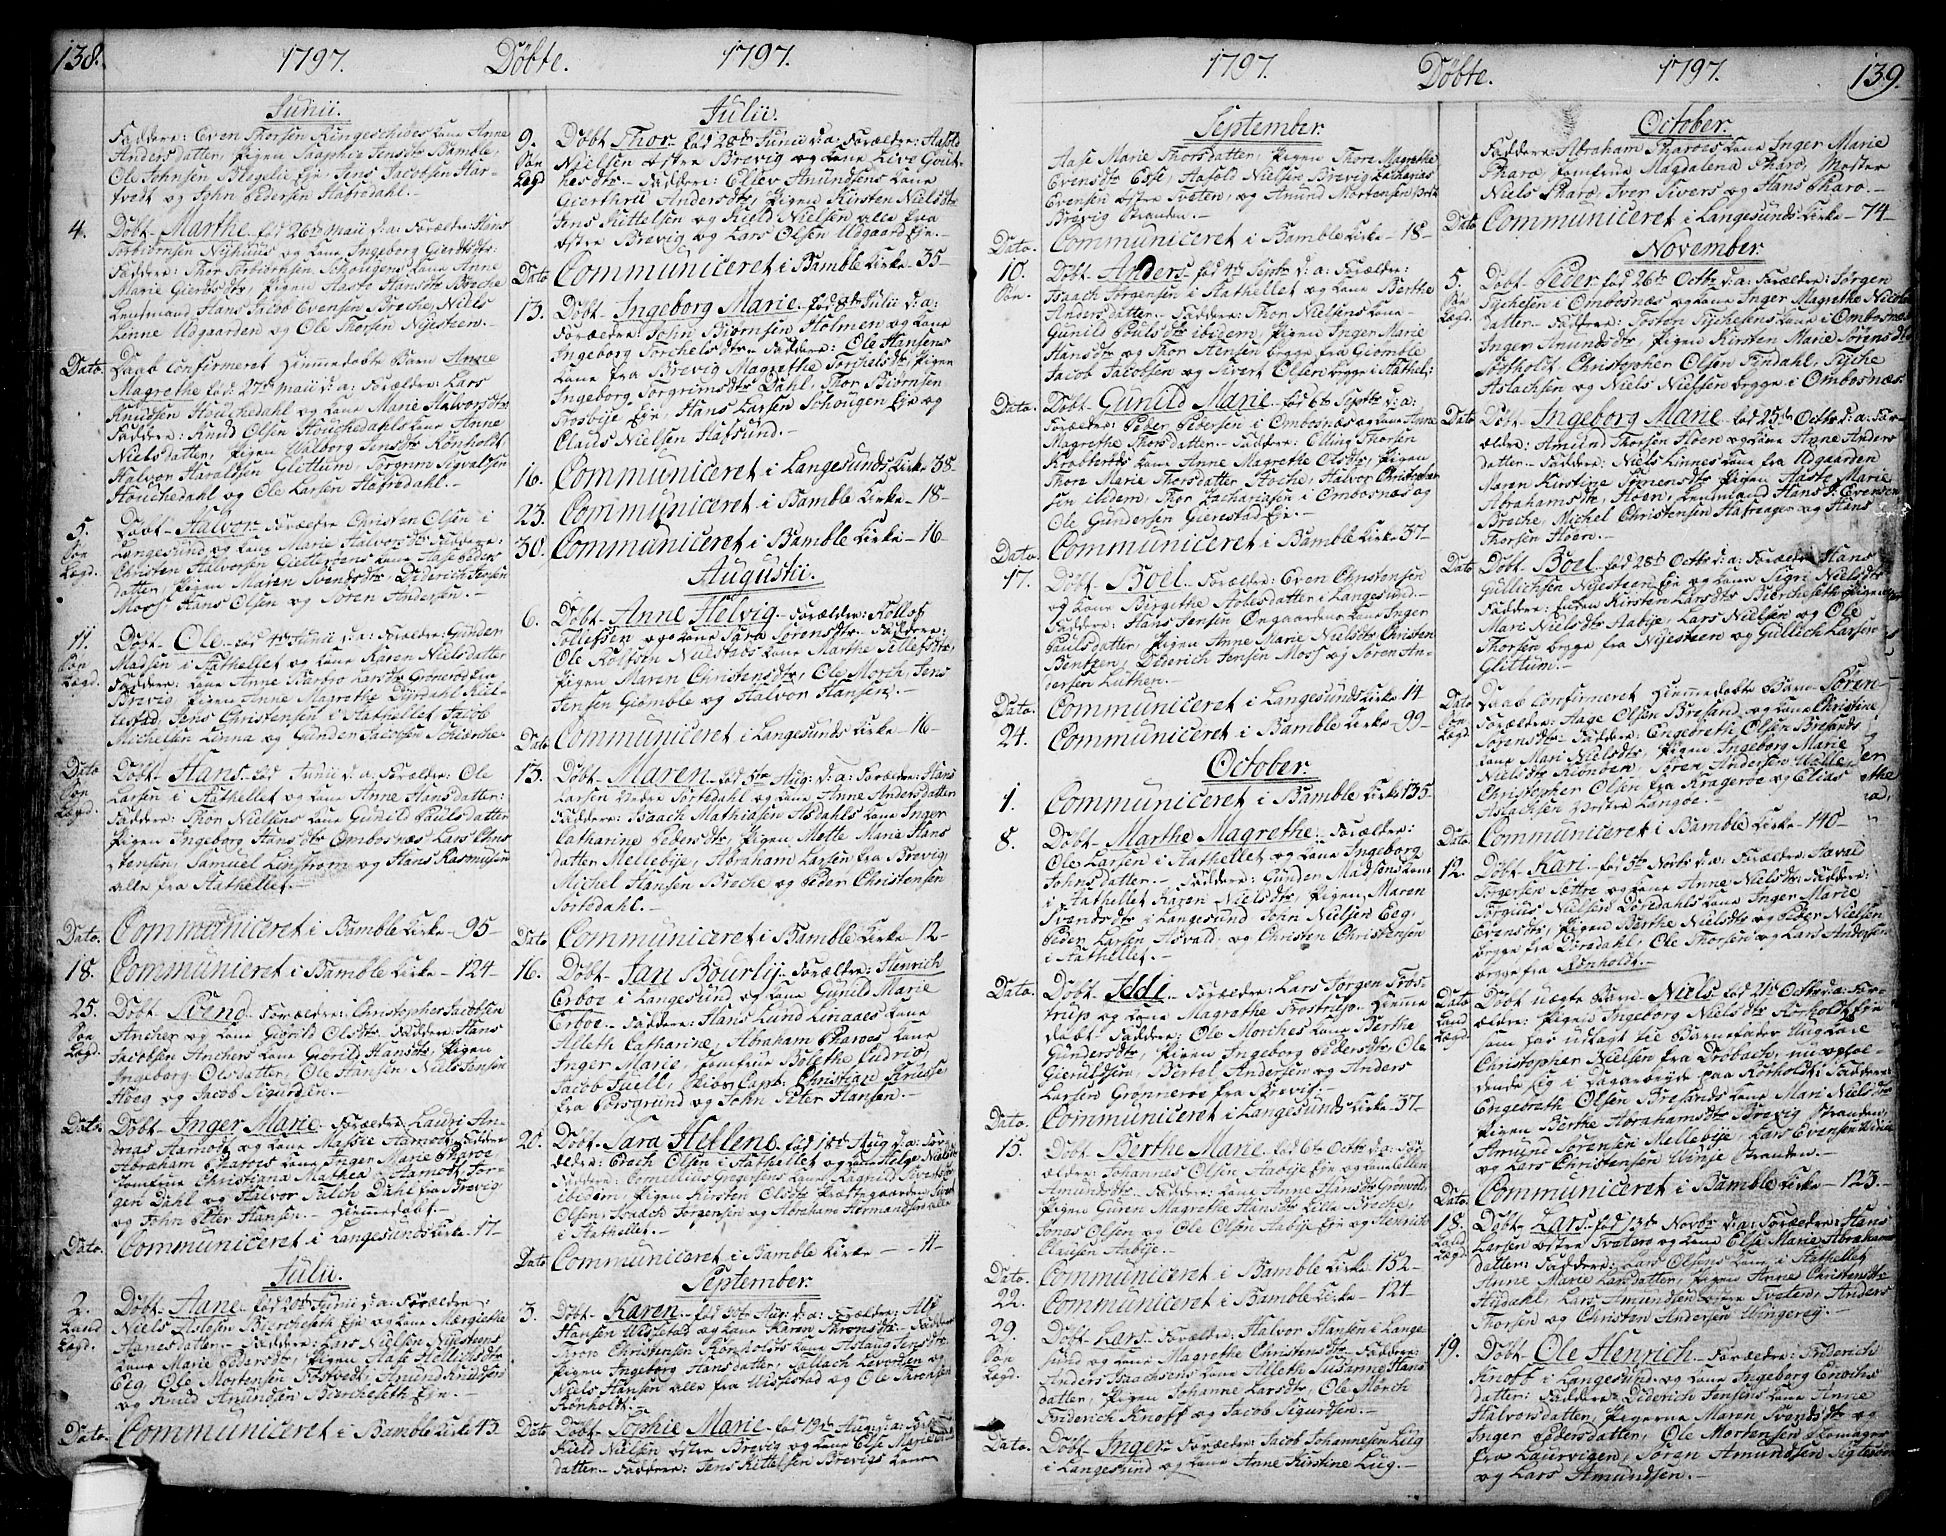 138.
1797. Döbte. 1797.
Junii.
Faddere: Even Thorsen Ringeschibes Kone Anne
Anders datter, Pigen Saaphie Jensdtr Bamble,
Ole Johnsen Blegelie Eje, Jens Jacobsen Har-
vedt og John Pedersen Hafredahl.-
4. Döbt Marthe fød 26de Maii d:a: Forældre: Hans
Torbiörnsen Nyehuus og Kone Ingeborg Gierdsdtr
Faddere: Thor Torbiörnsen Schougens Kone Anne
Marie Gierdsdtr, Pigen Aaste Hansdtr Breche
Leutnand Hans Jacob Evensen Breche, Niels
Linne Udgaarden og Ole Thorsen Nyesteen.-
Dato. Daab Confirmeret Hiemmedøbte Barn Anne
Magrethe fød: 27de Maii d:a: Forældre: Lars
Knudsen Houchedahl og Kone Marie Halvorsdtr
Faddere: Knud Olsen Houchedahls Kone Anne
Nielsdatter, Pigen Valborg Jensdtr Rönholt,
Halvor Haraldsen Glittum, Torgrim Sigvaldsen
Houchedahl og Ole Larsen Hafredahl.-
5. Döbt Halvor Forældre Christen Olsen i
Søn Langesund og Kone Marie Halvorsdtr Faddere:
Lægd. Christen Halvorsen Gietterøens Kone Aase Peders
datter, Pigen Maren Svendsdtr Diderich Jensen
Moss Hans Olsen og Sören Andersen.-
11. Döbt Ole fød 4de Junii d:a: Forældre: Gunder
Søn Madsen i Aathellet og Kone Karen Nielsdatter
Lægd. Faddere: Kone Anne Barbro Larsdtr Grönerod fra
Brevig Pigen Anne Magrethe Dyrdahl
Jens Christensen i Aathellet Jacob
Michelsen Linna og Gunder Jacobsen Schierche.
Dato Döbt Hans fød Junii d:a: Forældre: Ole
Søn Larsen i Aathellet og Kone Anne Hansdatter:
Lægd. Faddere: Thor Nielsens Kone Gunild Poulsdatter
Pigen Ingeborg Hansdtr Ombosnæs Lars Chri-
stensen, Samuel Linstrom og Hans Rasmusen
alle fra Aathellet.-
Dato. Communiceret i Bamble Kirke - 95-
18. Communiceret i Bamble Kirke - 124-
25. Döbt Svend Forældre: Christopher Jacobsen
Søn Ancher og Kone Giörild Olsdtr Faddere Hans
Lægd. Jacobsen Anchers Kone Giörild Hansdtr, Pigen
Ingeborg Olsdatter, Ole Hansen, Niels Jensen
Höeg og Jacob Sigurdsen.-
Dato. Döbt Inger Marie Forældre Lauri An-
dreas Aamott og Kone Massie Aamot; Faddere
Abraham Pharoes Kone Inger Marie Pharoe
Jomfrue Christiana Mathea Aamot, Jör-
gen Dahl og Halvor Falch Dahl fra Brevig
og John Peter Hansen.- Hiemmedøbt.-
Dato. Communiceret i Langesunds Kirke - 17-
Julii.
2. Döbt Aane fød 20de Junii d:a: Forældre:
Land Niels Aslesen Bierchesett Eje og Kone Mærgrethe
Lægd. Hanesdatter- Faddere: Lars Nielsen Nyesteens
Kone Marie Pedersdtr, Pigen Aase Hellichsdtr
Eeg, Ole Mortensen Tostvedt, Amund Knudsen
og Knud Amundsen Bierchesett Eje.-
Dato. Communiceret i Bamble Kirke 43.
Julii.
9. Döbt Thor fød 28de Junii d:a: Forældre: Aasold
Søn Nielsen østre Brevig og Kone Live Gout-
Lægd kesdtr- Faddere: Oluv Anundsens Kone
Gierthru Andersdtr, Pigen Kirsten Nielsdtr
Jens Kittelsen og Kield Nielsen alle fra
østre Brevig og Lars Olsen Udgaard Eje.-
Dato Communiceret i Bamble Kirke - 35-
13. Döbt Ingeborg Marie fød 8de Julii d:a:
Forældre: John Biörnsen Holmen og Kone
Ingeborg Torchelsdtr- Faddere: Ole Hansens
Kone fra Brevig Magrethe Torchelsdtr, Pigen
Ingeborg Torgrimsdtr Dahl, Thor Biörnsen
Trosbije Eje, Hans Larsen Schougen Eje og
Claus Nielsen Hafsund.-
16. Communiceret i Langesunds Kirke 38-
23. Communiceret i Bamble Kirke - 18-
30. Communiceret i Bamble Kirke - 16-
Augustii.
6. Döbt Anne Helvig Forældre: Rollof
Tollefsen og Kone Sara Sörensdtr Faddere:
Ole Rolfsen Nustads Kone Marthe Tellefsdtr,
Pigen Maren Christensdtr, Ole Morch, Jens
Jensen Giömble og Halvor Hansen.-
Dato Communiceret i Langesunds Kirke - 16-
13. Döbt Maren fød 5te Aug: d:a: Forældre: Hans
Larsen Nedre Tortedahl og Kone Anne Andersdatter
Faddere: Isaach Mathiasen Aasdahls Kone Inger
Catharine Pedersdtr, Pigen Mette Marie Hans
datter Mellebije, Abraham Larsen fra Brevig,
Michel Hansen Breche og Peder Christensen
Tortedahl.-
Dato Communiceret i Bamble Kirke - 12-
16. Döbt Jan Bourlij Forældre: Henrich
Erboe i Langesund og Kone Gunild Marie
Erboe.- Faddere: Hans Lund Linaaes Kone
Alleth Catharine, Abraham Pharoes Kone
Inger Marie, Jomfrue Bolethe Cudrio,
Jacob Juell, Skiøv Capt. Christian Kruuse,
fra Porsgrund og John Peter Hansen.-
20. Döbt Sara Hellene fød 18de Aug: d:a: Foræ-
ldre: Erach Olsen i Aathellet og Kone Helge Nielsdtr
Faddere: Cornelius Gregersens Kone Ragnild Iversdtr
ibidem, Pigen Kirsten Olsdtr Prættegaarden Sivert
Olsen, Isaach Jørgensen og Abraham Hermandsen alle
i Aathellet.-
Dato Communiceret i Bamble Kirke - 11-
September.
3. Döbt Karen fød 30te Aug: d:a: Forældre Als
Hansen Wissestad og Kone Karen Thronsdtr Faddere
Tron Christensen Rönholts Kone Aslaug Jensdtr
Pigen Ingeborg Hansdatter, Tallach Levorsen og
Niels Hansen alle fra Wissestad og Ole Thronsen
Rönholt.-
Dato Döbt Sophie Marie fød 19de Aug: d:a: Forældre
Kield Nielsen østre Brevig og Kone Else Marie
datter- Faddere: Jens Kittelsen Brevigs Kone
1797. Döbte. 1797. 139.
September.
Aase Marie Thorsdatter, Pigen Thore Magrethe
Evensdtr Esse, Aasold Nielsen Brevig Zacharias
Evensen østre Tveten, og Amund Mortensen
Brevig Stranden.-
Dato. Communiceret i Bamble Kirke - 18-
10. Döbt Anders fød 4de Septr d:a: Forældre:
Søn. Isaach Jørgensen i Aathellet og Kone Berthe
Andersdatter- Faddere: Thor Nielsens Kone
Gunild Poulsdtr ibidem, Pigen Inger Marie
Hansdtr og Thor Jensen begge fra Giomble
Jacob Jacobsen og Sivert Olsen begge i Aathel:
Dato. Döbt Gunild Marie fød 6te Septr d:a:
Forældre: Peder Pedersen i Ombosnæs og Kone Anne
Magrethe Thorsdatter- Faddere: Elling Thorsen
Krabberøds Kone Anne Magrethe Olsdtr, Pigen
Thore Marie Thorsdatter Stoche, Halvor Christopher-
sen ibidem, Thor Zachariasen i Ombosnæs og
Ole Gundersen Gierestad Eje.-
Dato. Communiceret i Bamble Kirke - 37-
17. Döbt Boel Forældre: Even Christensen
og Kone Bergithe Aslesdatter i Langesund.-
Faddere: Hans Jensen Öngaardens Kone Inger
Poulsdatter, Pigen Anne Marie Nielsdtr Christen
Bentzen, Diderich Jensen Moss og Sören An-
dersen Luthen.-
Dato. Communiceret i Langesunds Kirke 14
24. Communiceret i Bamble Kirke - 99-
October.
1. Communiceret i Bamble Kirke 135-
8. Döbt Marthe Magrethe Forældre:
Ole Larsen i Aathellet og Kone Ingeborg
Johnsdatter.- Faddere: Gunder Madsens Kone
i Aathellet Karen Nielsdtr, Pigen Maren
Svendsdtr i Langesund John Nielsen Eeg,
Peder Larsen Asvald og Christen Christensen
i Aathellet.-
Dato. Döbt Iddi Forældre: Lars Jörgen Tros-
trup og Kone Magrethe Trostrup- Hiemme
døbt- Faddere: Ole Morches Kone Berthe
Gundersdtr, Pigen Ingeborg Pedersdtr, Ole
Gierulfsen, Bertel Andersen og Anders
Larsen Grönneroe fra Brevig.-
Dato. Communiceret i Langesunds Kirke - 37-
15. Döbt Berthe Marie fød 6te Octbr d:a: For-
ældre: Johannes Olsen Aabije Eje og Kone Ellen
Amundsdtr- Faddere: Kone Anne Hansdtr Grönvold,
Pigen Guren Magrethe Hansdtr Lille Breche,
Jonas Olsen og Ole Olsen Aabije Eje og Henrich
Clausen Aabije.-
Dato. Communiceret i Bamble Kirke - 152-
22. Communiceret i Bamble Kirke - 124-
29. Döbt Lars Forældre: Halvor Hansen i Lange
Søn sund og Kone Magrethe Christensdtr- Faddere:
Lægd. Anders Isaachsens Kone Alleth Susanne Hans
datter, Pigen Johanne Larsdtr, Ole Mörch
Friderich Knoff og Jacob Sigurdsen.-
Dato. Döbt Inger Forældre: Jacob Johannesen Lug
i Langesund og Kone Anne Kirstine Lug.-
October.
Faddere: Abraham Pharoes Kone Inger Marie
Pharo, Jomfrue Magdalena Pharo, Mester
Niels Pharo, Iver Sivers og Hans Pharo.-
Dato Communiceret i Langesunds Kirke - 74-
November.
5. Döbt Peder fød 26de Octbr d:a: Forældre: Sörgen
Søn Tychesen i Ombosnæs og Kone Inger Magrethe Nicolai
Lægd. datter- Faddere: Tosten Tychesens Kone i Ombosnæs
Inger Amundsdtr, Pigen Kirsten Marie Sörensdtr
Søtholt, Christopher Olsen Findahl, Tyche
Aslachsen og Niels Nielsen begge i Ombosnæs
Dato Döbt Ingeborg Marie fød 25de Octbr d:a: For-
ældre: Amund Thorsen Hoen og Kone Anne Anders
datter- Faddere: Niels Linnes Kone fra Udgaarden
Maren Kirstine Simensdtr Pigen Aaste Marie
Abrahamsdtr Hoen, Leutnand Hans J: Evensen
Breche, Michel Christensen Hafsager og Hans
Thorsen Hoen.-
Dato Döbt Boel fød 28de Octbr d:a: Forældre Hans
Gullichsen Nyesteen Eje og Kone Signi Nielsdtr
Faddere: Kone Kirsten Larsdtr Bierchesett Pigen
Mari Nielsdtr Aabije, Lars Nielsen og Ole
Thorsen begge fra Nyesteen og Gullich Larsen
Glittum.-
Dato Daab Confirmeret Hiemmedøbte Barn Sören
Søn Forældre: Aage Olsen Bresand og Kone Christine
Lægd. Sörensdtr- Faddere: Engebreth Olsen Bresands
Kone Mari Nielsdtr, Pigen Ingeborg Marie
Nielsdtr Rionden, Sören Andersen Walle,
Christopher Olsen fra Kragerøe og Elias
Aslachsen Østre Langøe.-
Dato. Communiceret i Bamble Kirke - 140-
12. Döbt Kari fød 5te Novbr d:a: Forældre: Aavald
Torgersen Sættre og Kone Anne Nielsdtr: Faddere:
Torgius Nielsen Dördahls Kone Inger Marie
Evensdtr, Pigen Berthe Nielsdtr og Peder Nielsen
begge fra Dördahl, Ole Thorsen og Lars Andersen
begge fra Rønholdt.-
Dato Döbt uægte Barn Niels fød 21de Octbr d:a: For-
Land ældre: Pigen Ingeborg Nielsdtr Rorholt Eje
Lægd. som har udlagt til Barnefader Ung Karl
Christopher Nielsen fra Drobach, nu ophol-
dende sig i Dagarbejde paa Rörholdt: Faddere
Engebreth Olsen Bresands Kone Mari Nielsdtr
Pigen Berthe Abrahamsdtr Brevig Stranden,
Amund Sörensen Mellebije, Lars Evensen
og Lars Christensen Winje Stranden.-
Dato. Communiceret i Bamble Kirke - 123.-
18. Döbt Lars fød 13de Novbr d:a: Forældre: Hans
Land Larsen østre Tvaterø og Kone Else Marie Abrahams
Lægd. datter- Faddere: Lars Olsens Kone i Aathellet
Anne Marie Larsdatter, Pigen Anne Christensdtr
Findahl, Lars Amundsen østre Tveten, Anders
Thorsen og Christen Andersen Wingereg.-
19. Döbt Ole Henrich Forældre: Friderich
Knoff i Langesund og Kone Ingeborg Enochs
datter: Faddere: Diderich Jensens Kone Anne
Halvorsdatter, Pigerne Maren Svendsdtr og
Inger Pedersdatter, Ole Mortensen Skomager
fra Laurvigen, Sören Amundsen Sigtesøe
og Lars Amundsen.-